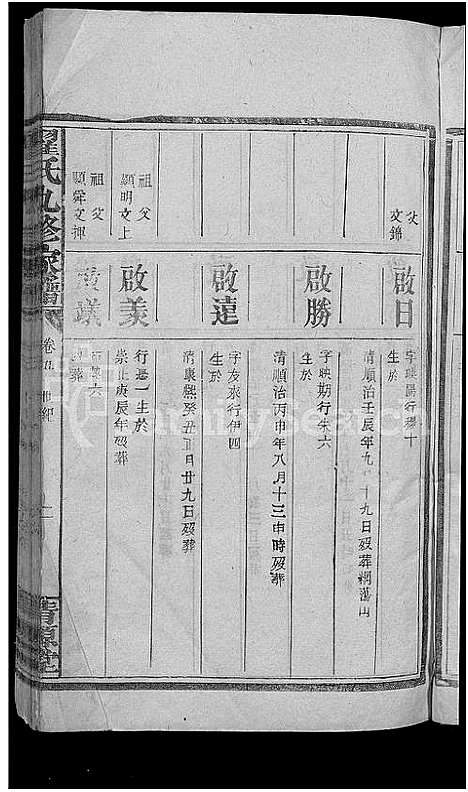 父 文錦
啟日
字映陽行穆十
生於
清順治壬辰年九月十九日歿葬桐蕩山
啟勝
字映期行朱六
生於
清順治丙申年八月十三申時歿葬
啟達
字友求行伊四
生於
清康熙癸丑正月廿九日歿葬
祖 顯明
父 文上
啟美
行惠一生於
崇正庚辰年歿葬
祖 顯舜
父 文押
氏九修家譜
卷五 世紀